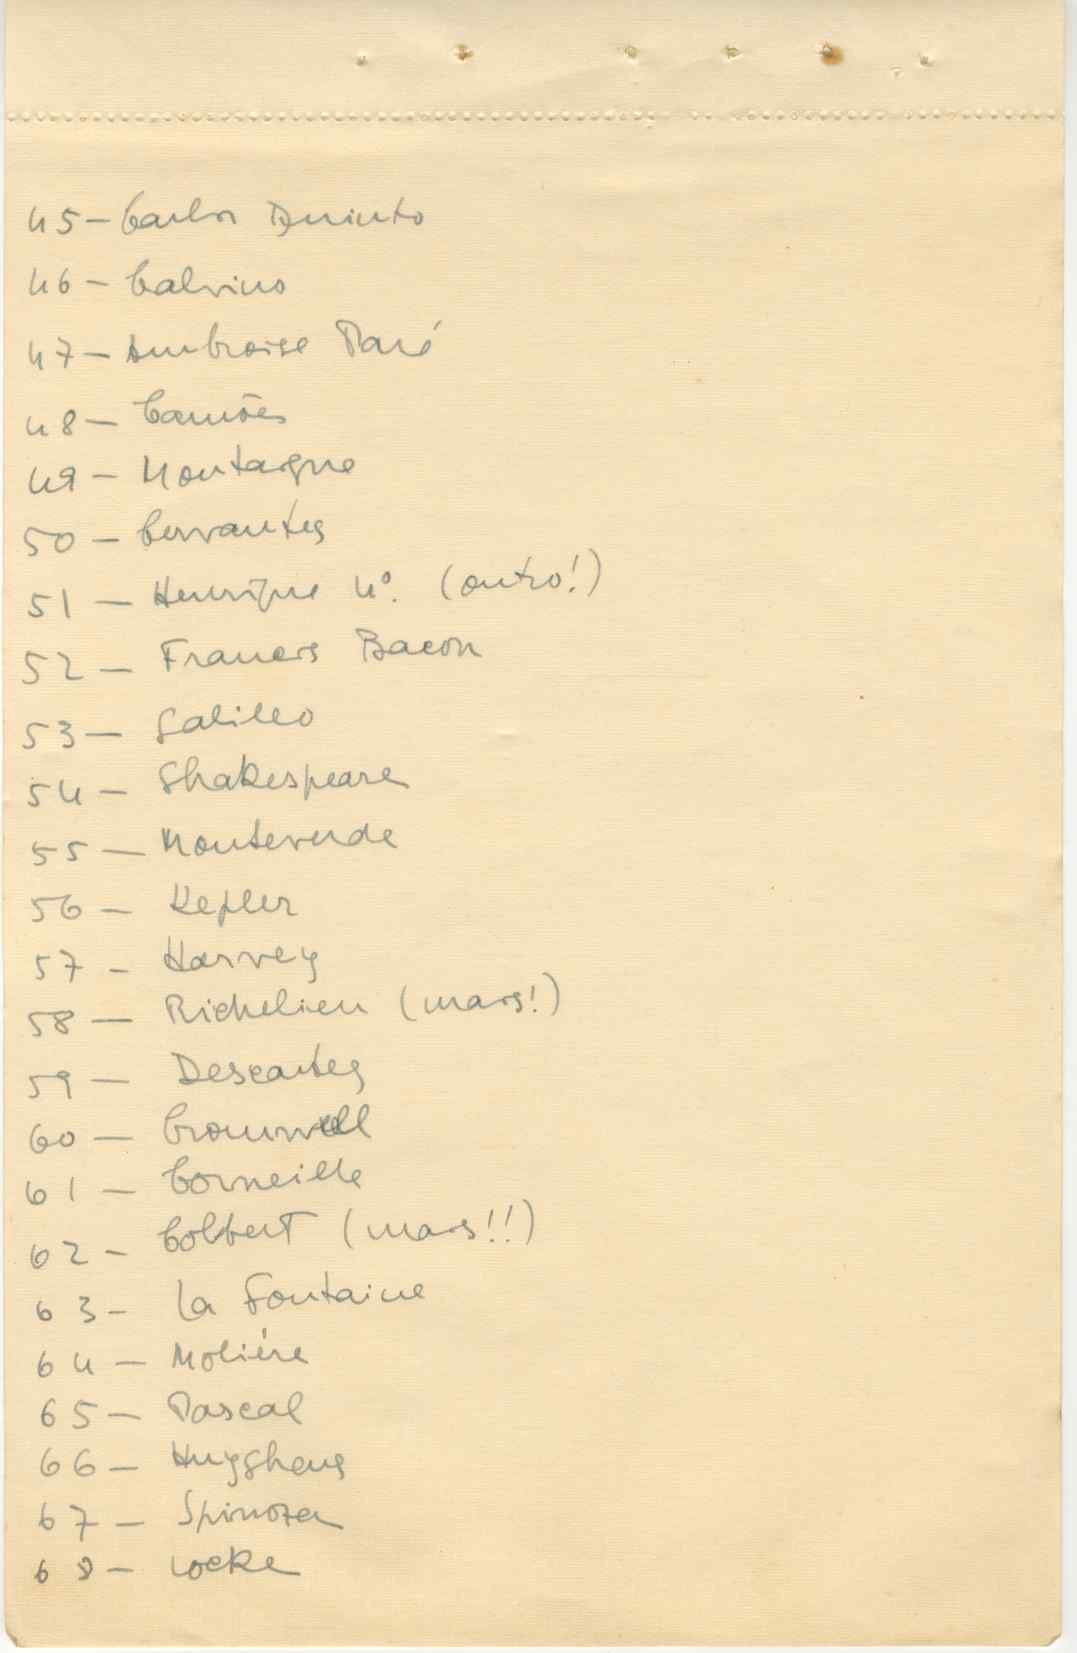 45 - Carlos Quinto
46 - Calvino
47 - Ambroise Paré
48 - Camões
49 - Montaigne
50 - Cervantes
51 - Henrique 4º. (outro!)
52 - Francis Bacon
53 - Galileo
54 - Shakespeare
55 - Monteverde
56 - Kepler
57 - Harvey
58 - Richelieu (mais!)
59 - Descartes
60 - Cromwell
61 - Corneille
62 - Colbert (mais!!)
63 - La Fontaine
64 - Moliére
65 - Pascal
66 - Huyghens
67 - Spinoza
68 - Locke